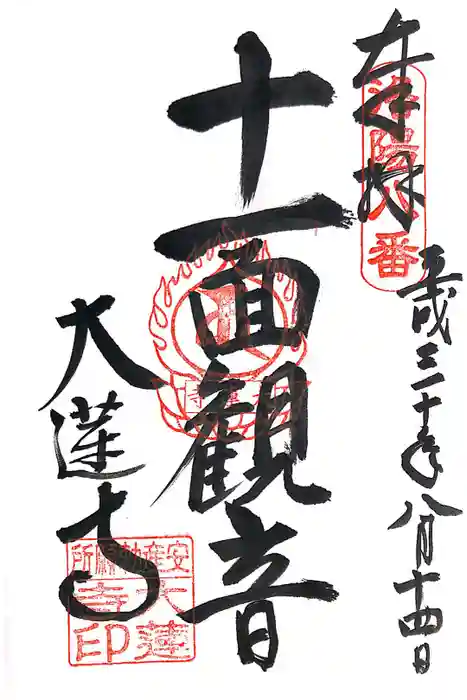 奉拝
洛陽八番
平成三十年八月十四日
十一面観音
大蓮寺
安産勅願所
大蓮寺印